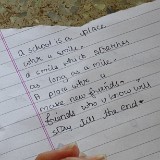 a school is a place
with a smile.
a smile which streches
as long as a mile.
A place with u
make new friends.
friends who u know will
stay till the end.